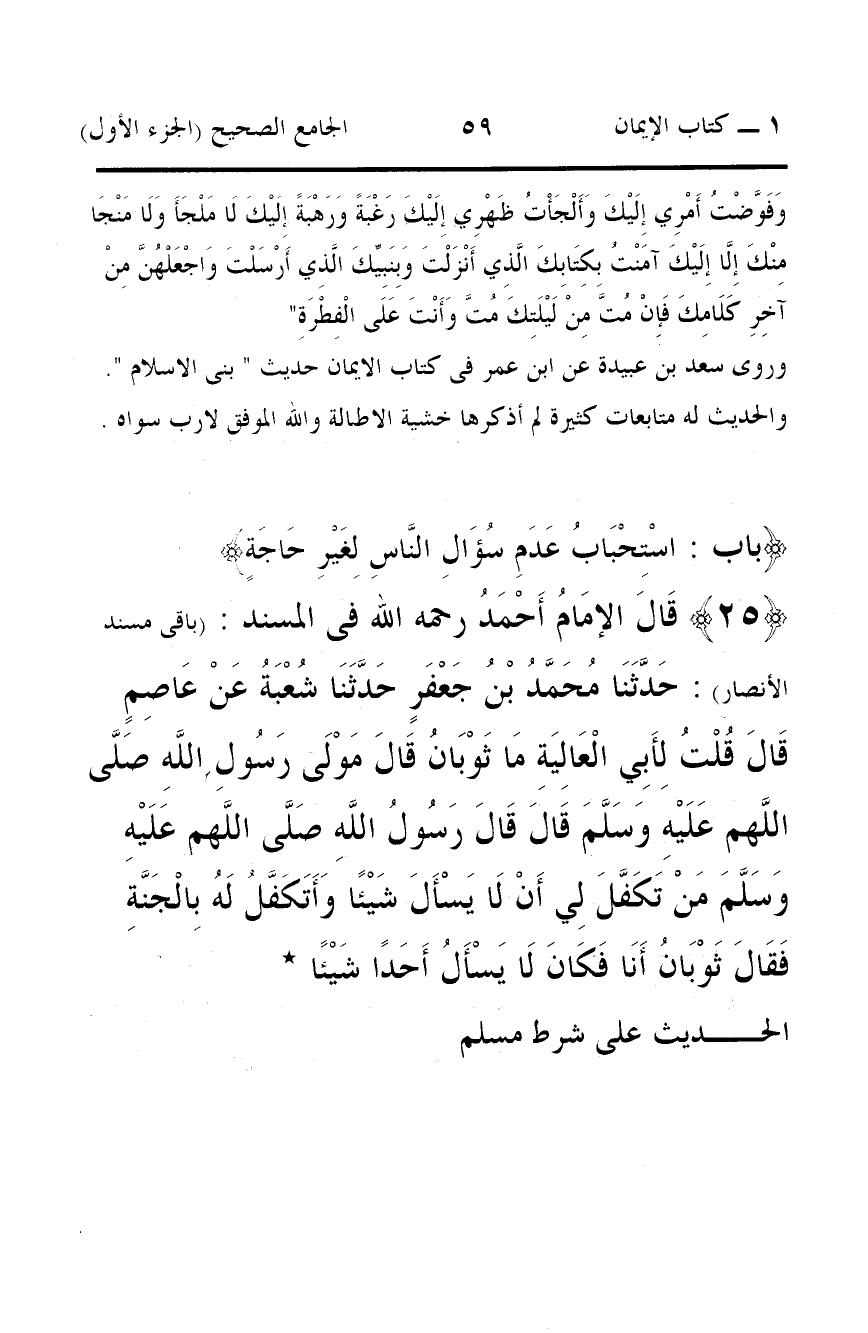 ١ ــ كتاب الإيمان ٥٩ الجامع الصحيح (الجزء الأول)
وَفَوَّضْتُ أَمْرِي إِلَيْكَ وَأَلْجَأْتُ ظَهْرِي إِلَيْكَ رَغْبَةً وَرَهْبَةً إِلَيْكَ لَا مَلْجَأَ وَلَا مَنْجَا
مِنْكَ إِلَّا إِلَيْكَ آمَنْتُ بِكِتَابِكَ الَّذِي أَنْزَلْتَ وَبِنَبِيِّكَ الَّذِي أَرْسَلْتَ وَاجْعَلْهُنَّ مِنْ
آخِرِ كَلَامِكَ فَإِنْ مُتَّ مِنْ لَيْلَتِكَ مُتَّ وَأَنْتَ عَلَى الْفِطْرَةِ"
وروى سعد بن عبيدة عن ابن عمر فى كتاب الايمان حديث " بنى الاسلام ".
والحديث له متابعات كثيرة لم أذكرها خشية الاطالة والله الموفق لارب سواه .
﴿باب : اسْتِحْبَابُ عَدَمِ سُؤَالِ النَّاسِ لِغَيْرِ حَاجَةٍ﴾
﴿٢٥﴾ قَالَ الإِمَامُ أَحْمَدُ رحمه الله فى المسند : (باقى مسند
الأنصار) : حَدَّثَنَا مُحَمَّدُ بْنُ جَعْفَرٍ حَدَّثَنَا شُعْبَةُ عَنْ عَاصِمٍ
قَالَ قُلْتُ لِأَبِي الْعَالِيَةِ مَا ثَوْبَانُ قَالَ مَوْلَى رَسُولِ اللَّهِ صَلَّى
اللَّهم عَلَيْهِ وَسَلَّمَ قَالَ قَالَ رَسُولُ اللَّهِ صَلَّى اللَّهم عَلَيْهِ
وَسَلَّمَ مَنْ تَكَفَّلَ لِي أَنْ لَا يَسْأَلَ شَيْئًا وَأَتَكَفَّلُ لَهُ بِالْجَنَّةِ
فَقَالَ ثَوْبَانُ أَنَا فَكَانَ لَا يَسْأَلُ أَحَدًا شَيْئًا *
الحـــــديث على شرط مسلم